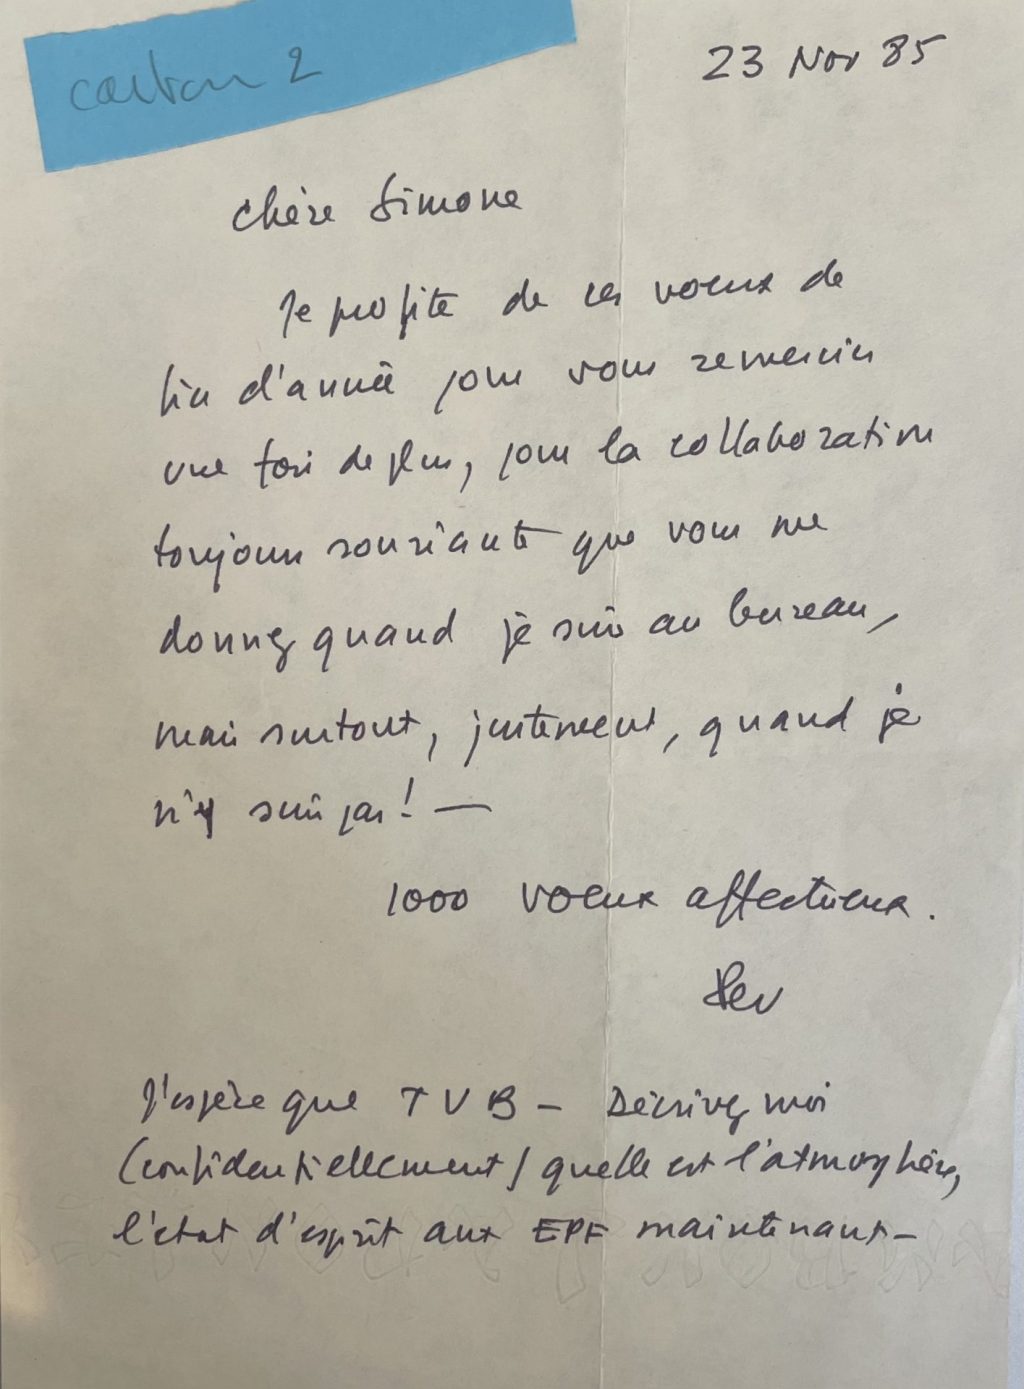 carton 2
23 Nov 85
Chère Simone
Je profite de ces voeux de
fin d'année pour vous remercier
une fois de plus, pour la collaboration
toujours souriante que vous me
donnez quand je suis au bureau,
mais surtout, justement, quand je
n'y suis pas ! —
1000 voeux affectueux.
J'espère que TVB – Décrivez moi
(confidentiellement) quelle est l'atmosphère,
l'état d'esprit aux EPF maintenant –